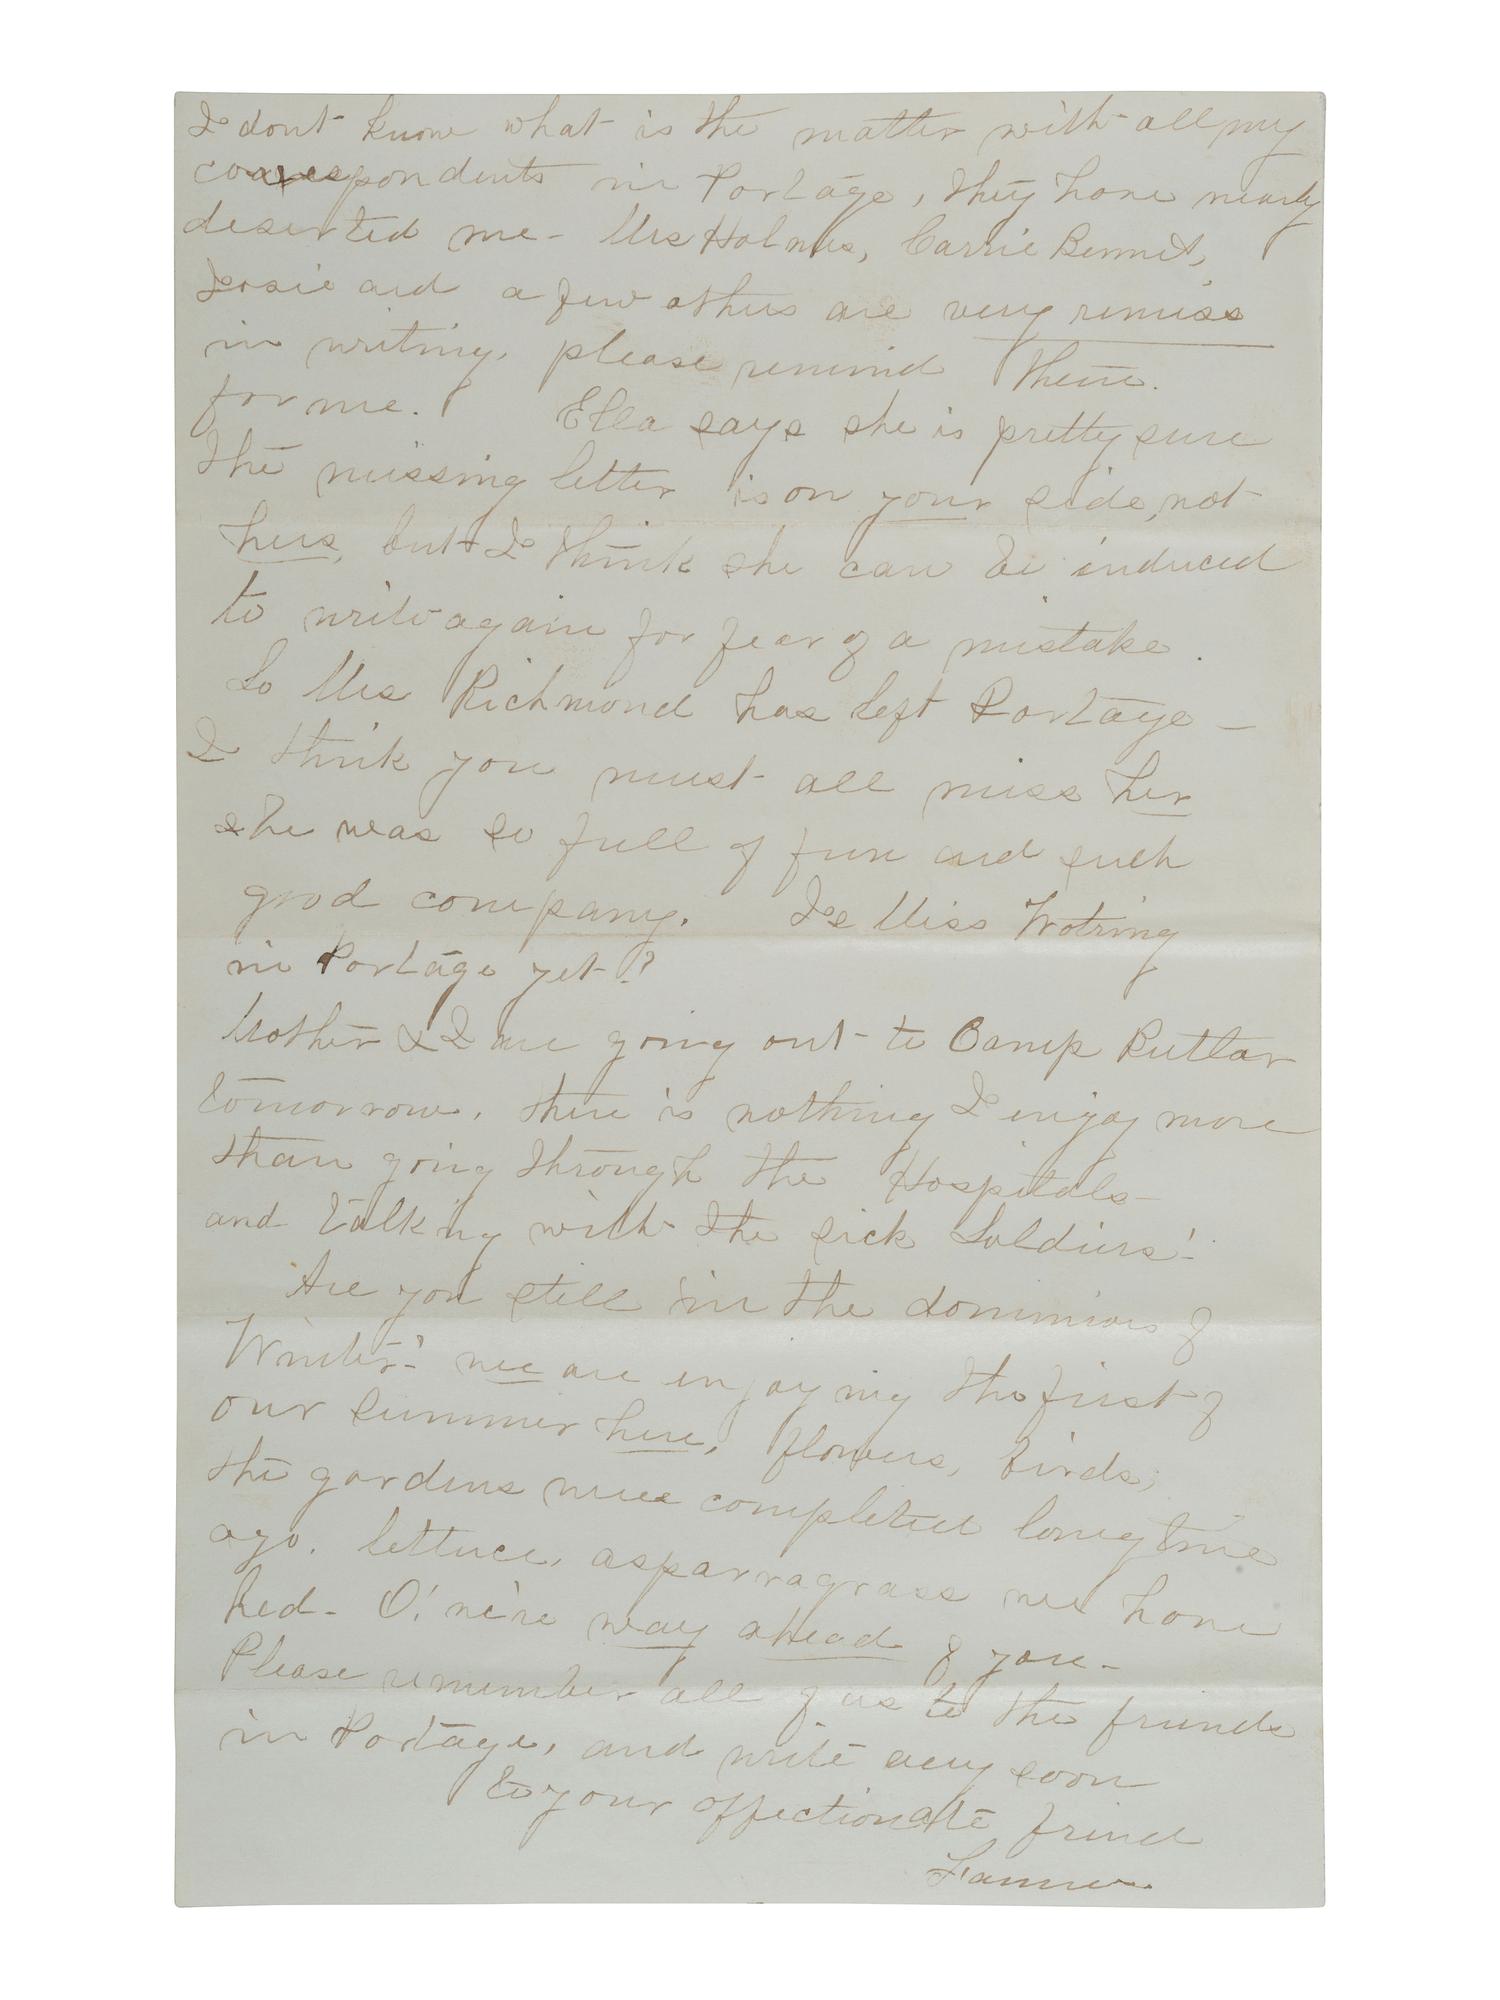 I dont know what is the matter with all my
correspondents in Portage, they have nearly
deserted me - Mrs Holmes, Carrie Bennet,
Josie and a few others are very remiss
in writing. please remind them.
for me. Ella says she is pretty sure
the missing letter is on your side, not
hers, but I think she can be induced
to write again for fear of a mistake.
So Mrs Richmond has left Portage -
I think you must all miss her
she was so full of fun and such
good company. Is Miss Wotring
in Portage yet?
Mother & I are going out to Camp Butlar
tomorrow. there is nothing I enjoy more
than going through the Hospitals
and talking with the sick Soldiers!
Are you still in the dominions of
Winter? we are enjoying the first of
our summer here, flowers, birds,
the gardens were completed long time
ago. lettuce, asparragrass we have
had - O! we're way ahead of you -
Please remember all of us to the friends
in Portage, and write very soon
to your affectionate friend
Fannie.